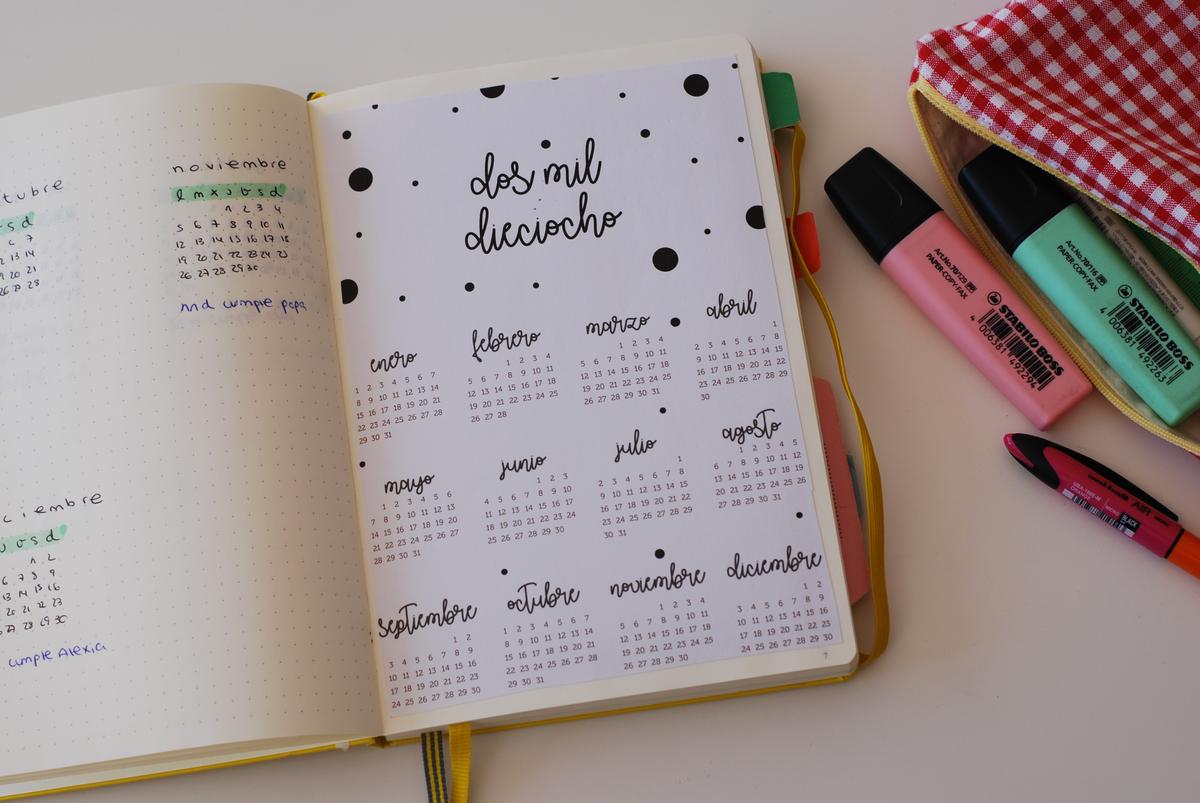 tubre
s d
6 7
12 13 14
19 20 21
26 27 28
noviembre
l m x j v s d
1 2 3 4
5 6 7 8 9 10 11
12 13 14 15 16 17 18
19 20 21 22 23 24 25
26 27 28 29 30
cumple papa
ciembre
v s d
1 2
6 7 8 9
13 14 15 16
20 21 22 23
27 28 29 30
umple Alexia
dos mil
dieciocho
enero
1 2 3 4 5 6 7
8 9 10 11 12 13 14
15 16 17 18 19 20 21
22 23 24 25 26 27 28
29 30 31
febrero
1 2 3 4
5 6 7 8 9 10 11
12 13 14 15 16 17 18
19 20 21 22 23 24 25
26 27 28
marzo
1 2 3 4
5 6 7 8 9 10 11
12 13 14 15 16 17 18
19 20 21 22 23 24 25
26 27 28 29 30 31
abril
1
2 3 4 5 6 7 8
9 10 11 12 13 14 15
16 17 18 19 20 21 22
23 24 25 26 27 28 29
30
mayo
1 2 3 4 5 6
7 8 9 10 11 12 13
14 15 16 17 18 19 20
21 22 23 24 25 26 27
28 29 30 31
junio
1 2 3
4 5 6 7 8 9 10
11 12 13 14 15 16 17
18 19 20 21 22 23 24
25 26 27 28 29 30
julio
1
2 3 4 5 6 7 8
9 10 11 12 13 14 15
16 17 18 19 20 21 22
23 24 25 26 27 28 29
30 31
agosto
1 2 3 4 5
6 7 8 9 10 11 12
13 14 15 16 17 18 19
20 21 22 23 24 25 26
27 28 29 30 31
septiembre
1 2
3 4 5 6 7 8 9
10 11 12 13 14 15 16
17 18 19 20 21 22 23
24 25 26 27 28 29 30
octubre
1 2 3 4 5 6 7
8 9 10 11 12 13 14
15 16 17 18 19 20 21
22 23 24 25 26 27 28
29 30 31
noviembre
1 2 3 4
5 6 7 8 9 10 11
12 13 14 15 16 17 18
19 20 21 22 23 24 25
26 27 28 29 30
diciembre
1 2
3 4 5 6 7 8 9
10 11 12 13 14 15 16
17 18 19 20 21 22 23
24 25 26 27 28 29 30
7
Art.No.70/129
PAPER·COPY·FAX
STABILO BOSS
4 006381 492294
Art.No.70/116
PAPER·COPY·FAX
STABILO BOSS
4 006381 492263
uni-ball AIR
BLACK